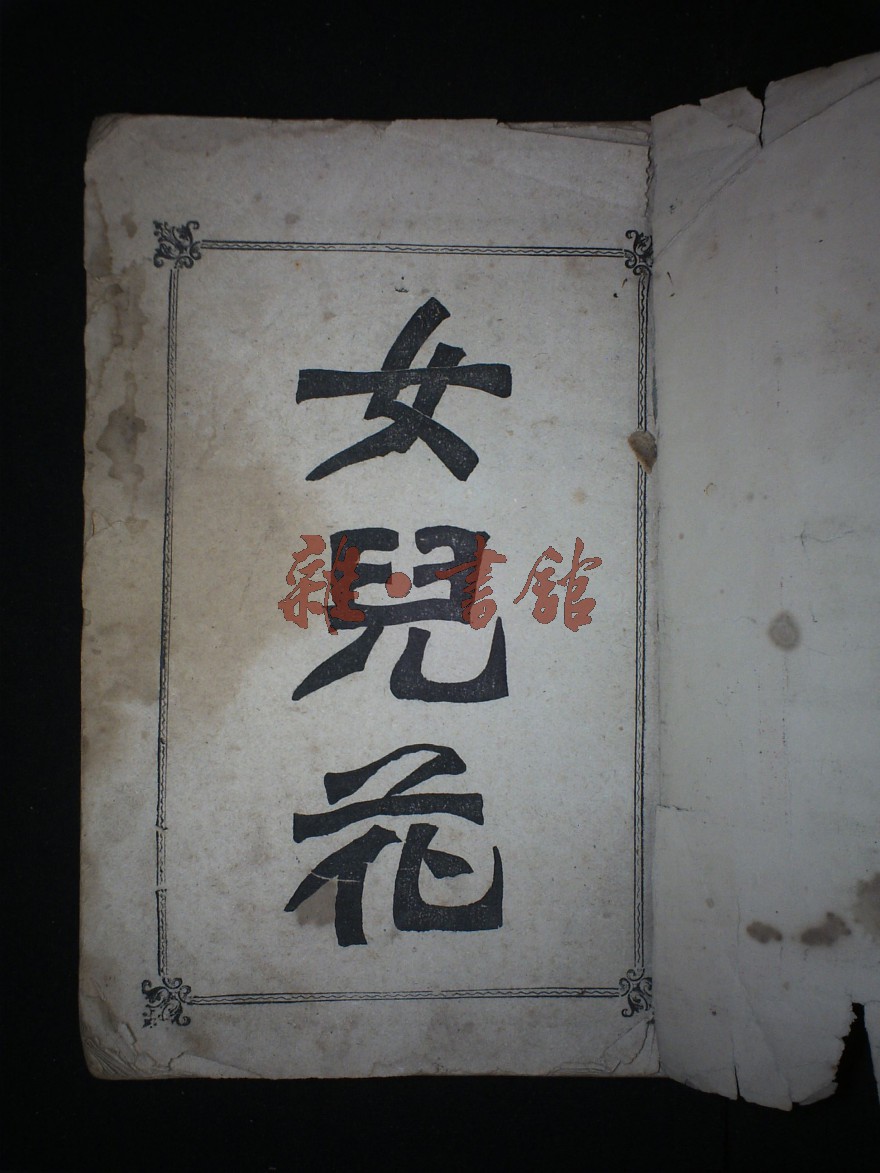 女兒花
雜·書館